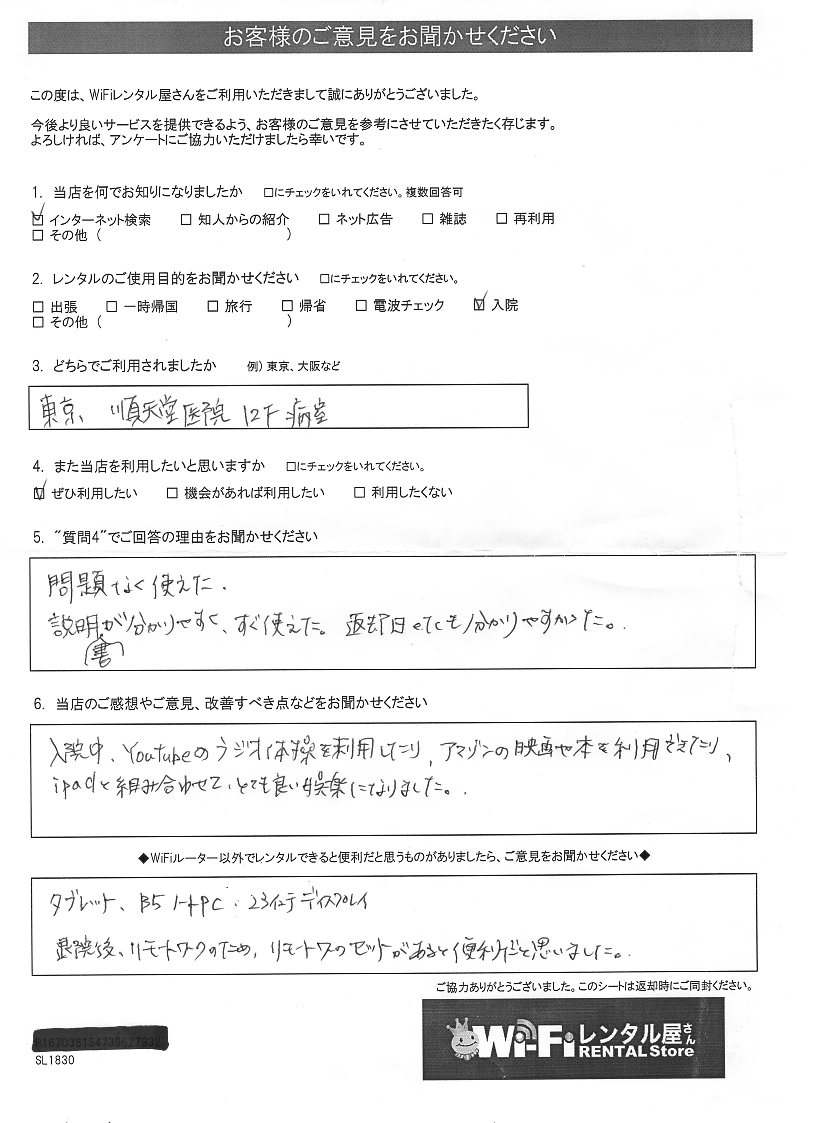 お客様のご意見をお聞かせください
この度は、WiFiレンタル屋さんをご利用いただきまして誠にありがとうございました。
今後より良いサービスを提供できるよう、お客様のご意見を参考にさせていただきたく存じます。
よろしければ、アンケートにご協力いただけましたら幸いです。
1. 当店を何でお知りになりましたか □にチェックをいれてください。複数回答可
☑ インターネット検索 □ 知人からの紹介 □ ネット広告 □ 雑誌 □ 再利用
□ その他 ( )
2. レンタルのご使用目的をお聞かせください □にチェックをいれてください。
□ 出張 □ 一時帰国 □ 旅行 □ 帰省 □ 電波チェック ☑ 入院
□ その他 ( )
3. どちらでご利用されましたか 例) 東京、大阪など
東京、順天堂医院 12F 病室
4. また当店を利用したいと思いますか □にチェックをいれてください。
☑ ぜひ利用したい □ 機会があれば利用したい □ 利用したくない
5. “質問4”でご回答の理由をお聞かせください
問題なく使えた。
説明が分かりやすく、すぐ使えた。返却日etcも分かりやすかった。
書
6. 当店のご感想やご意見、改善すべき点などをお聞かせください
入院中、Youtubeのラジオ体操を利用したり、アマゾンの映画や本を利用できたり、
ipadと組み合わせて、とても良い娯楽になりました。
◆WiFiルーター以外でレンタルできると便利だと思うものがありましたら、ご意見をお聞かせください◆
タブレット、B5ノートPC・23インチディスプレイ
退院後、リモートワークのため、リモートワークのセットがあると便利だと思いました。
ご協力ありがとうございました。このシートは返却時にご同封ください。
SL1830
Wi-Fiレンタル屋さん
RENTAL Store